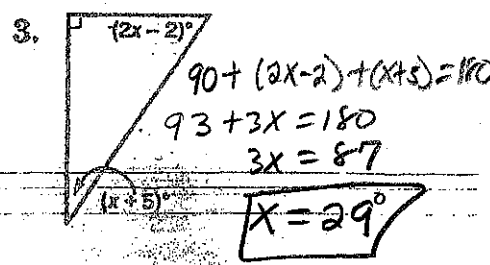 3.
(2x - 2)°
90 + (2x-2) + (x+5) = 180
93 + 3x = 180
3x = 87
(x + 5)°
x = 29°